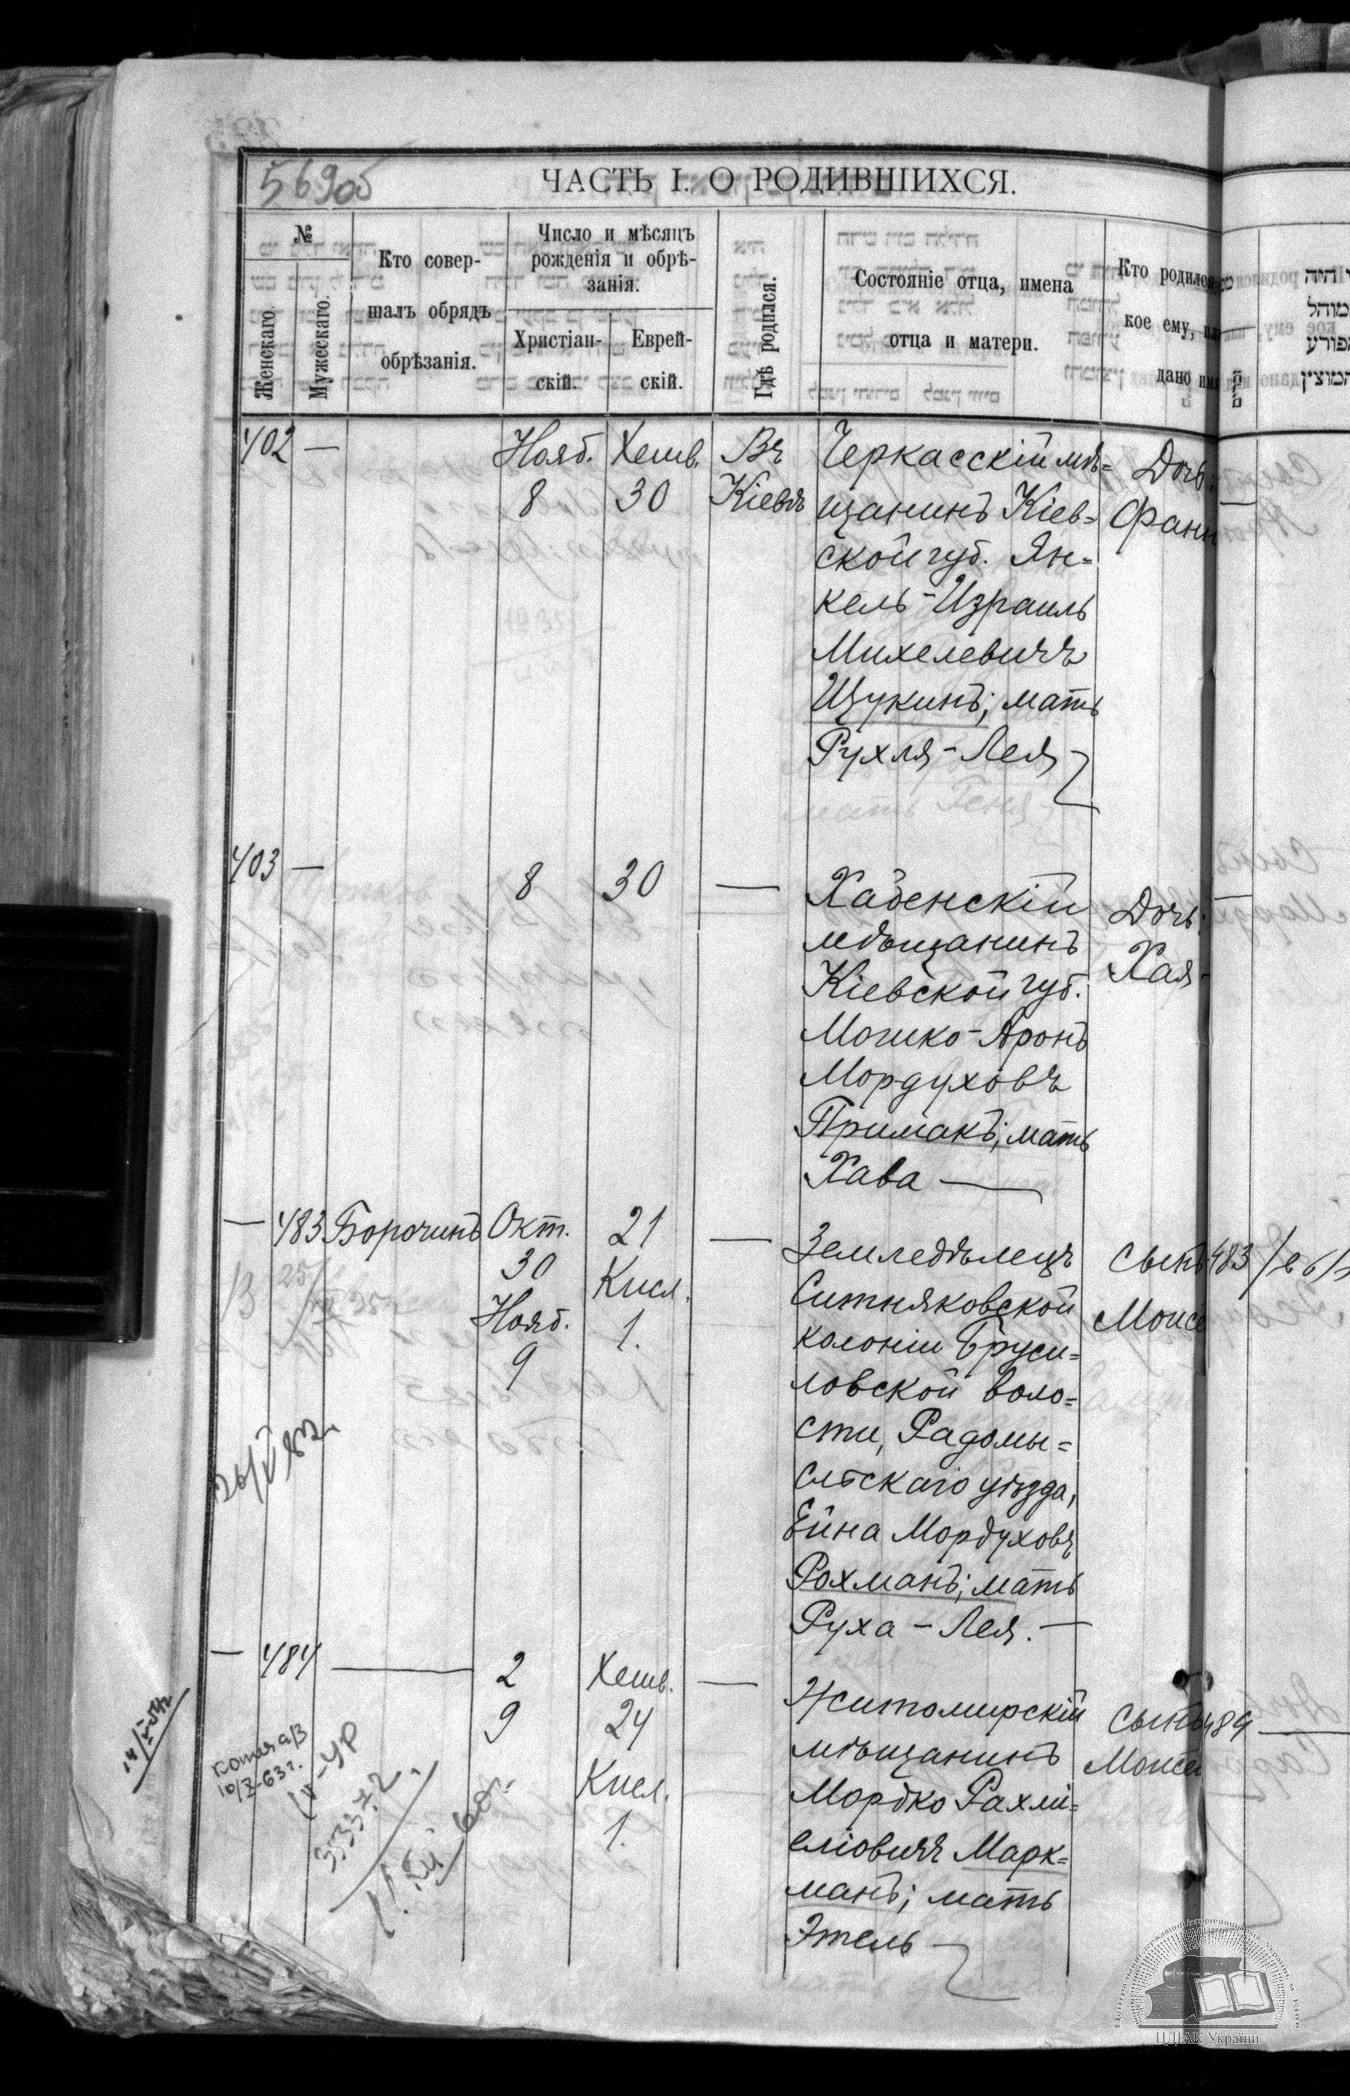 569об
ЧАСТЬ I. О РОДИВШИХСЯ.
№
Женскаго.
Мужескаго.
Кто совер-
шалъ обрядъ
обрѣзанія.
Число и мѣсяцъ
рожденія и обрѣ-
занія.
Христіан-
скій.
Еврей-
скій.
Гдѣ родился.
Состояніе отца, имена
отца и матери.
Кто родился
кое ему,
дано имя
402 —
Нояб.
8
Хешв.
30
Въ
Кіевѣ
Черкасскій мѣ=
щанинъ Кіев=
ской губ. Ян=
кель-Израиль
Михелевичъ
Щукинъ; мать
Рухля-Лея
Дочь:
Фани
403 —
8
30
—
Хабенскій
мѣщанинъ
Кіевской губ.
Мошко-Аронъ
Мордуховъ
Примакъ; мать
Хава —
Дочь:
Хая-
— 483
Борочинъ
Окт.
30
Нояб.
9
21
Кисл.
1.
—
Земледѣлецъ
Ситняковской
колоніи Бруси=
ловской воло=
сти, Радомы=
сльскаго уѣзда,
Ейна Мордуховъ
Рохманъ; мать
Руха-Лея. —
Сынъ 483
Моисе
— 484
—
2
9
Хешв.
24
Кисл.
1.
—
Житомирскій
мѣщанинъ
Мордко Рахми=
еліовичъ Марк=
манъ; мать
Этель
Сынъ 484
Моисе
копия а/з
10/X-63г.
ЦДІАК України